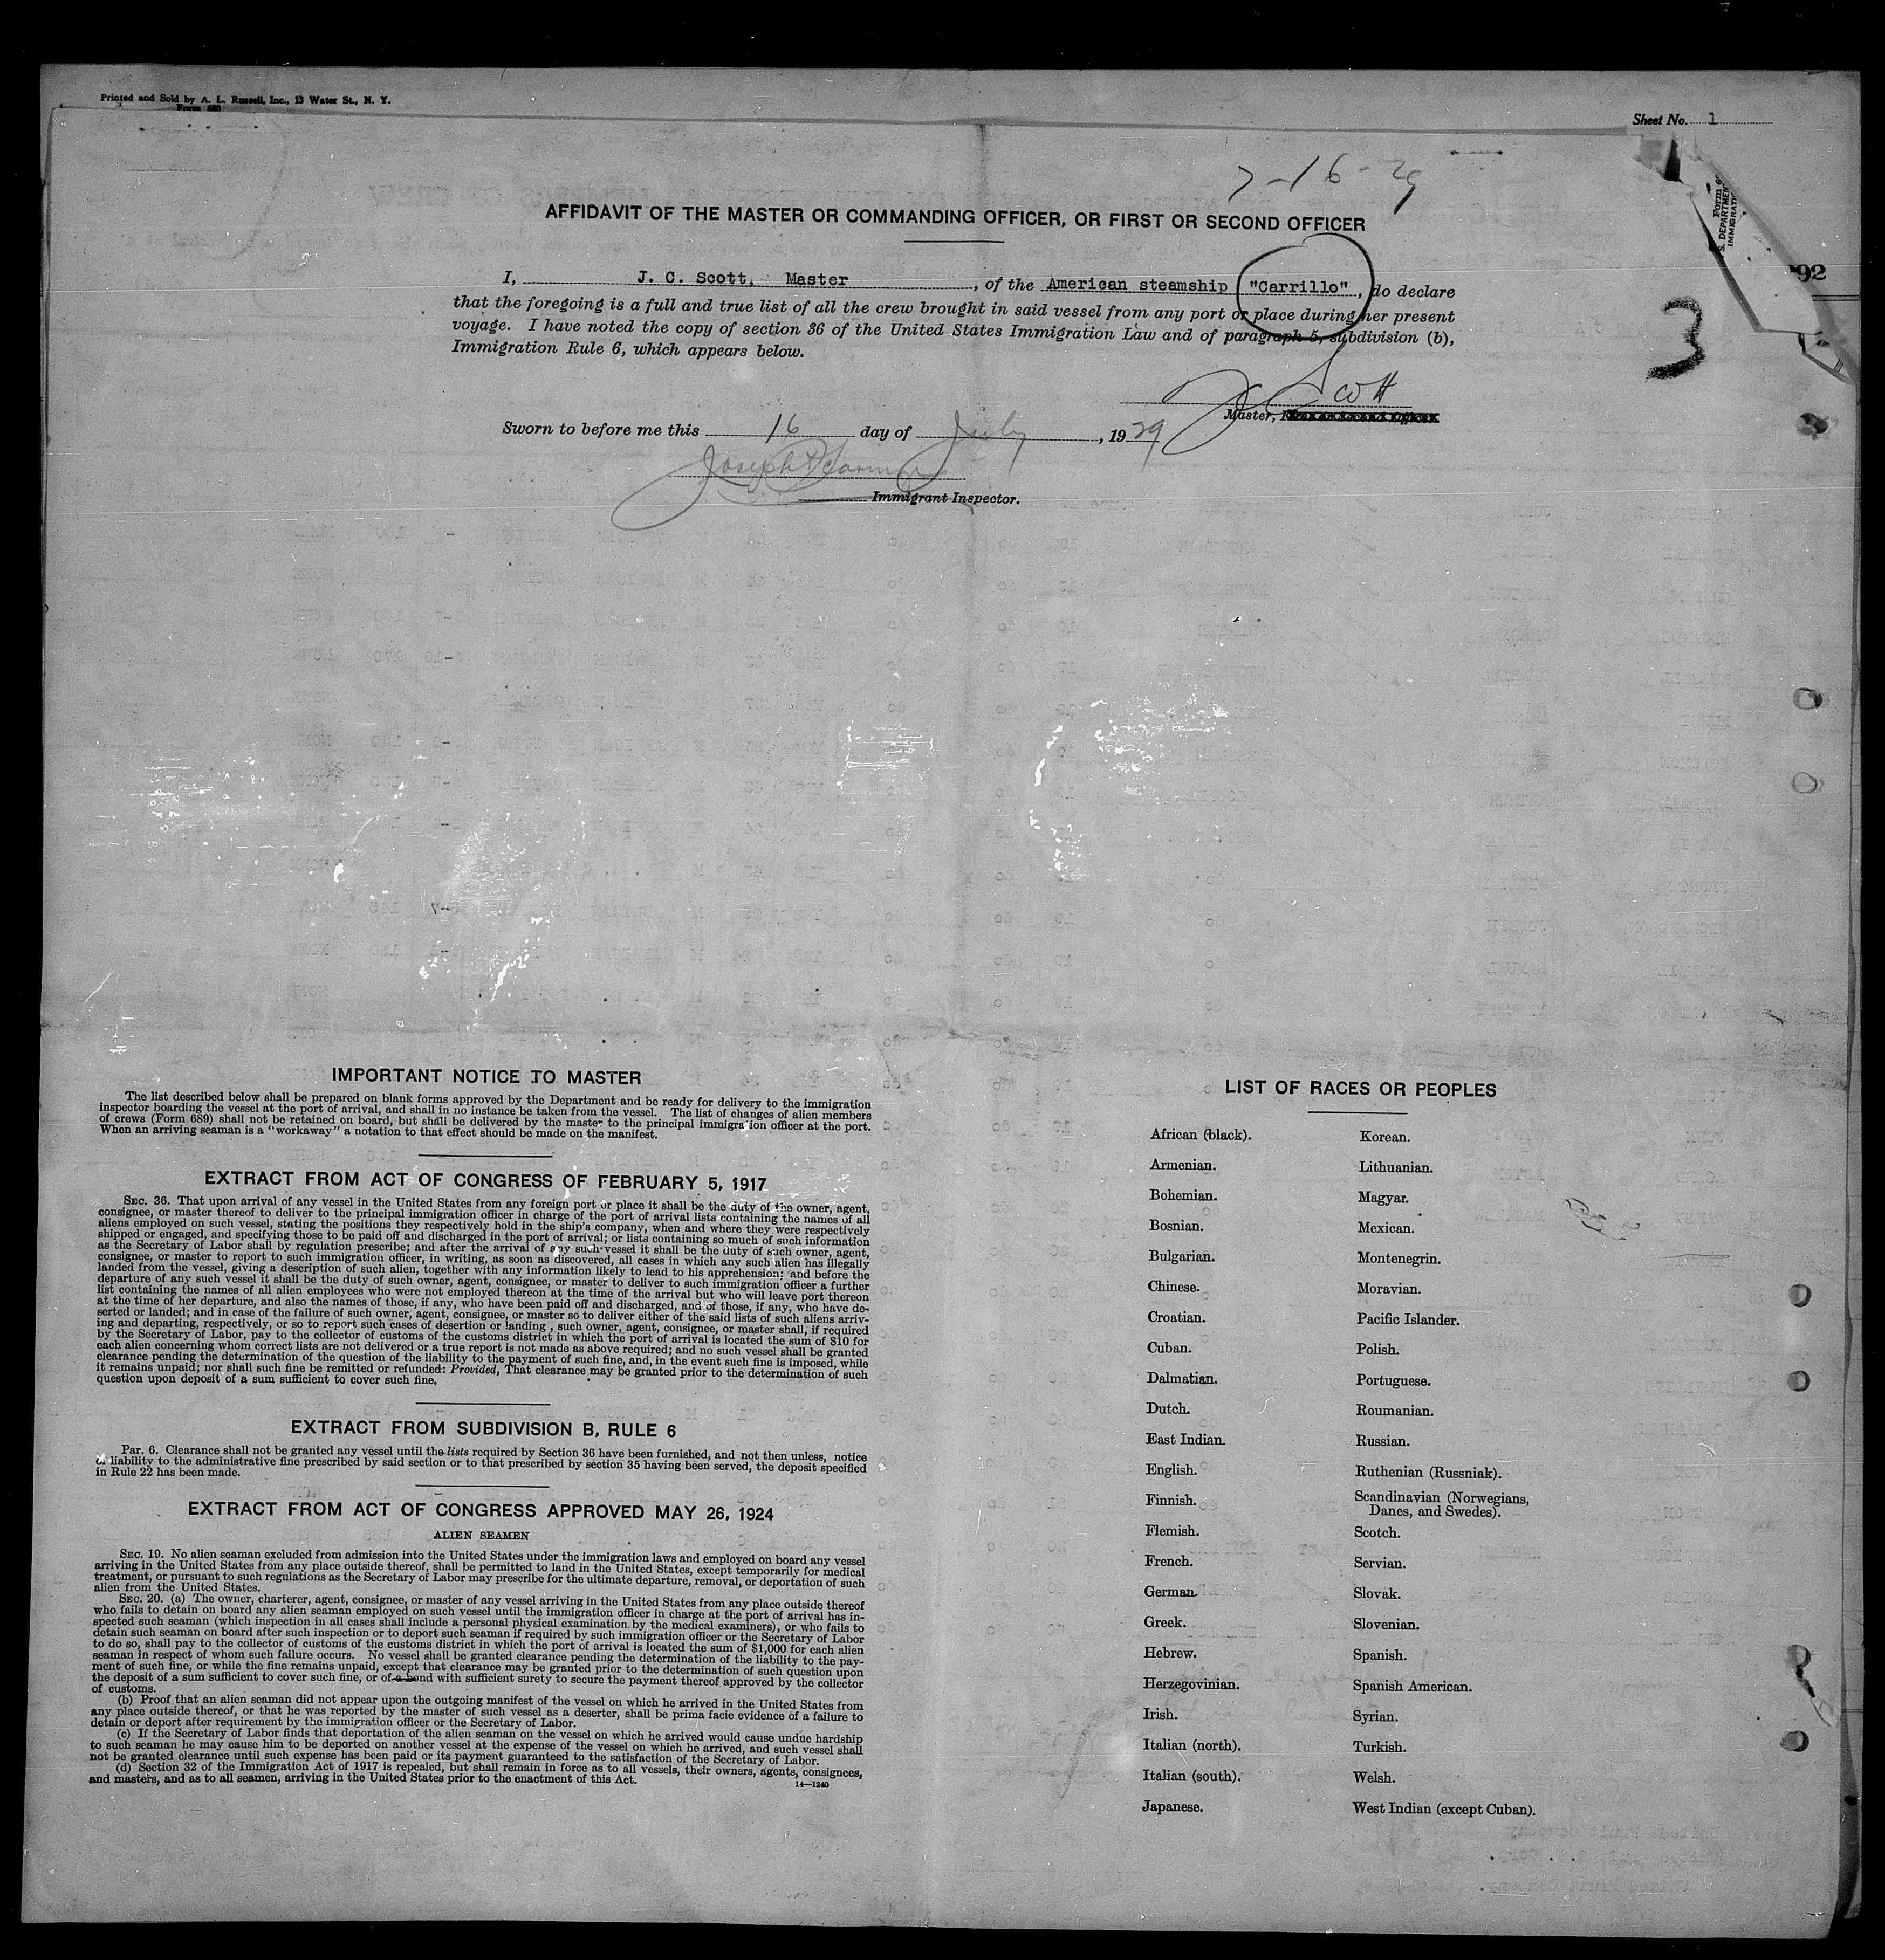 Printed and Sold by A. L. Russell, Inc., 13 Water St., N. Y.
Form 680
Sheet No. 1
7-16-29
AFFIDAVIT OF THE MASTER OR COMMANDING OFFICER, OR FIRST OR SECOND OFFICER
I, J. C. Scott, Master, of the American steamship "Carrillo", do declare
that the foregoing is a full and true list of all the crew brought in said vessel from any port or place during her present
voyage. I have noted the copy of section 36 of the United States Immigration Law and of paragraph 5, subdivision (b),
Immigration Rule 6, which appears below.
3
J C Scott
Master, First or Second Officer
Sworn to before me this 16 day of July, 1929
Joseph
Immigrant Inspector.
IMPORTANT NOTICE TO MASTER
The list described below shall be prepared on blank forms approved by the Department and be ready for delivery to the immigration
inspector boarding the vessel at the port of arrival, and shall in no instance be taken from the vessel. The list of changes of alien members
of crews (Form 689) shall not be retained on board, but shall be delivered by the master to the principal immigration officer at the port.
When an arriving seaman is a "workaway" a notation to that effect should be made on the manifest.
EXTRACT FROM ACT OF CONGRESS OF FEBRUARY 5, 1917
SEC. 36. That upon arrival of any vessel in the United States from any foreign port or place it shall be the duty of the owner, agent,
consignee, or master thereof to deliver to the principal immigration officer in charge of the port of arrival lists containing the names of all
aliens employed on such vessel, stating the positions they respectively hold in the ship's company, when and where they were respectively
shipped or engaged, and specifying those to be paid off and discharged in the port of arrival; or lists containing so much of such information
as the Secretary of Labor shall by regulation prescribe; and after the arrival of any such vessel it shall be the duty of such owner, agent,
consignee, or master to report to such immigration officer, in writing, as soon as discovered, all cases in which any such alien has illegally
landed from the vessel, giving a description of such alien, together with any information likely to lead to his apprehension; and before the
departure of any such vessel it shall be the duty of such owner, agent, consignee, or master to deliver to such immigration officer a further
list containing the names of all alien employees who were not employed thereon at the time of the arrival but who will leave port thereon
at the time of her departure, and also the names of those, if any, who have been paid off and discharged, and of those, if any, who have de-
serted or landed; and in case of the failure of such owner, agent, consignee, or master so to deliver either of the said lists of such aliens arriv-
ing and departing, respectively, or so to report such cases of desertion or landing, such owner, agent, consignee, or master shall, if required
by the Secretary of Labor, pay to the collector of customs of the customs district in which the port of arrival is located the sum of $10 for
each alien concerning whom correct lists are not delivered or a true report is not made as above required; and no such vessel shall be granted
clearance pending the determination of the question of the liability to the payment of such fine, and, in the event such fine is imposed, while
it remains unpaid; nor shall such fine be remitted or refunded: Provided, That clearance may be granted prior to the determination of such
question upon deposit of a sum sufficient to cover such fine.
EXTRACT FROM SUBDIVISION B, RULE 6
Par. 6. Clearance shall not be granted any vessel until the lists required by Section 36 have been furnished, and not then unless, notice
of liability to the administrative fine prescribed by said section or to that prescribed by section 35 having been served, the deposit specified
in Rule 22 has been made.
EXTRACT FROM ACT OF CONGRESS APPROVED MAY 26, 1924
ALIEN SEAMEN
SEC. 19. No alien seaman excluded from admission into the United States under the immigration laws and employed on board any vessel
arriving in the United States from any place outside thereof, shall be permitted to land in the United States, except temporarily for medical
treatment, or pursuant to such regulations as the Secretary of Labor may prescribe for the ultimate departure, removal, or deportation of such
alien from the United States.
SEC. 20. (a) The owner, charterer, agent, consignee, or master of any vessel arriving in the United States from any place outside thereof
who fails to detain on board any alien seaman employed on such vessel until the immigration officer in charge at the port of arrival has in-
spected such seaman (which inspection in all cases shall include a personal physical examination by the medical examiners), or who fails to
detain such seaman on board after such inspection or to deport such seaman if required by such immigration officer or the Secretary of Labor
to do so, shall pay to the collector of customs of the customs district in which the port of arrival is located the sum of $1,000 for each alien
seaman in respect of whom such failure occurs. No vessel shall be granted clearance pending the determination of the liability to the pay-
ment of such fine, or while the fine remains unpaid, except that clearance may be granted prior to the determination of such question upon
the deposit of a sum sufficient to cover such fine, or of a bond with sufficient surety to secure the payment thereof approved by the collector
of customs.
(b) Proof that an alien seaman did not appear upon the outgoing manifest of the vessel on which he arrived in the United States from
any place outside thereof, or that he was reported by the master of such vessel as a deserter, shall be prima facie evidence of a failure to
detain or deport after requirement by the immigration officer or the Secretary of Labor.
(c) If the Secretary of Labor finds that deportation of the alien seaman on the vessel on which he arrived would cause undue hardship
to such seaman he may cause him to be deported on another vessel at the expense of the vessel on which he arrived, and such vessel shall
not be granted clearance until such expense has been paid or its payment guaranteed to the satisfaction of the Secretary of Labor.
(d) Section 32 of the Immigration Act of 1917 is repealed, but shall remain in force as to all vessels, their owners, agents, consignees,
and masters, and as to all seamen, arriving in the United States prior to the enactment of this Act.
14—1240
LIST OF RACES OR PEOPLES
African (black). Korean.
Armenian. Lithuanian.
Bohemian. Magyar.
Bosnian. Mexican.
Bulgarian. Montenegrin.
Chinese. Moravian.
Croatian. Pacific Islander.
Cuban. Polish.
Dalmatian. Portuguese.
Dutch. Roumanian.
East Indian. Russian.
English. Ruthenian (Russniak).
Finnish. Scandinavian (Norwegians,
Danes, and Swedes).
Flemish. Scotch.
French. Servian.
German. Slovak.
Greek. Slovenian.
Hebrew. Spanish.
Herzegovinian. Spanish American.
Irish. Syrian.
Italian (north). Turkish.
Italian (south). Welsh.
Japanese. West Indian (except Cuban).